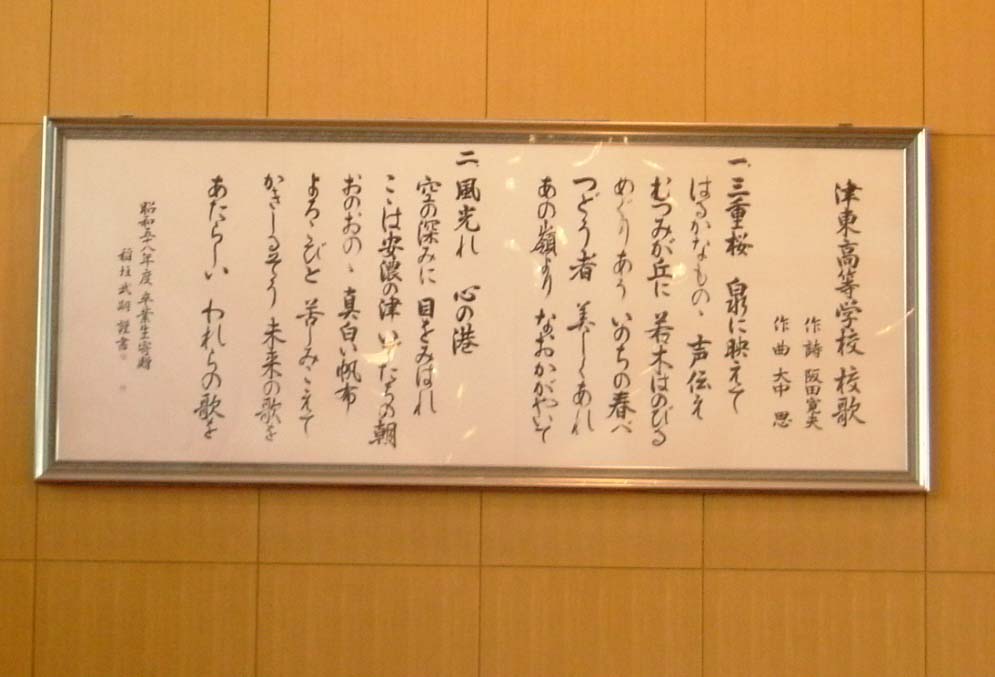 津東高等学校 校歌
作詩 阪田寛夫
作曲 大中 恩
一、三重桜 泉に映えて
はるかなものゝ 声伝え
むつみが丘に 若木はのびる
めぐりあう いのちの春べ
つどう者 美しくあれ
あの嶺より なおかがやいて
二、風光れ 心の港
空の深みに 目をみはれ
ここは安濃の津 いでたちの朝
おのおのゝ 真白い帆布
よろこびと 苦しみこえて
かきしるそう 未来の歌を
あたらしい われらの歌を
昭和五十八年度 卒業生寄贈
稲垣武嗣 謹書